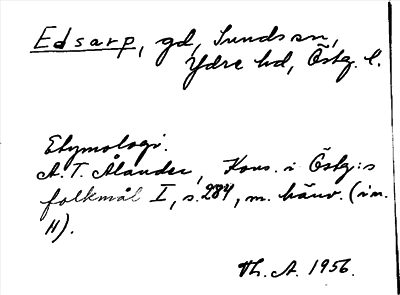 Edsarp, gd, Sunds sn,
Ydre hd, Östg. l.
Etymologi.
A. T. Ålander, Kons. i Östg:s
folkmål I, s. 284, m. hänv. (i m.
H).
Th. A. 1956.